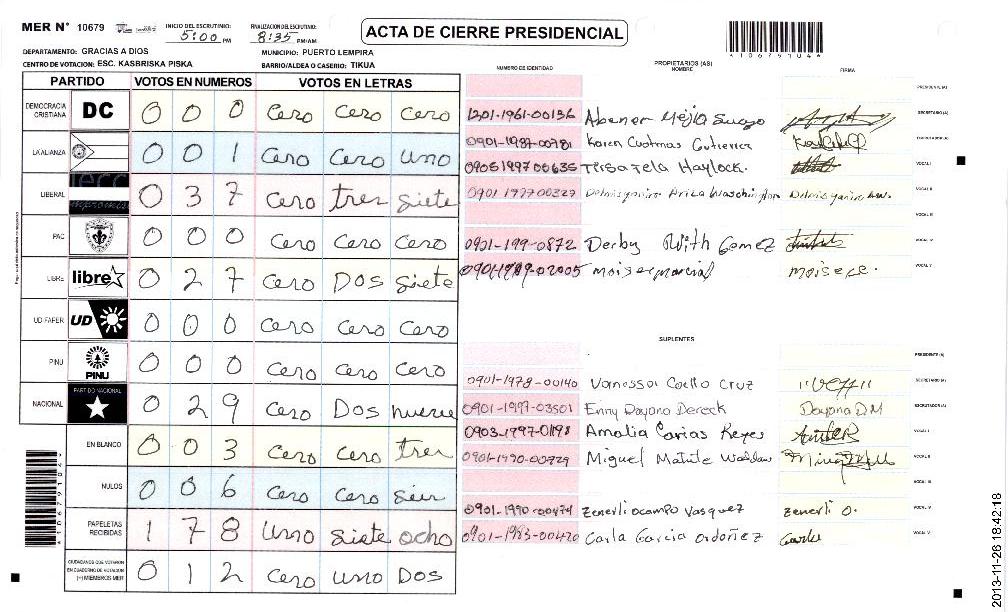 MER N° 10679
INICIO DEL ESCRUTINIO: 5:00 PM
FINALIZACION DEL ESCRUTINIO: 8:35 PM/AM
ACTA DE CIERRE PRESIDENCIAL
*106791044*
DEPARTAMENTO: GRACIAS A DIOS
MUNICIPIO: PUERTO LEMPIRA
CENTRO DE VOTACION: ESC. KASBRISKA PISKA
BARRIO/ALDEA O CASERIO: TIKUA
PARTIDO VOTOS EN NUMEROS VOTOS EN LETRAS
DEMOCRACIA CRISTIANA DC 0 0 0 Cero Cero Cero
LA ALIANZA 0 0 1 Cero Cero uno
LIBERAL 0 3 7 Cero tres siete
PAC 0 0 0 Cero Cero Cero
LIBRE libre 0 2 7 Cero Dos siete
UD/FAPER UD 0 0 0 Cero Cero Cero
PINU PINU 0 0 0 Cero Cero Cero
NACIONAL PARTIDO NACIONAL 0 2 9 Cero Dos nueve
EN BLANCO 0 0 3 Cero Cero tres
NULOS 0 0 6 Cero Cero seis
PAPELETAS RECIBIDAS 1 7 8 Uno siete ocho
CIUDADANOS QUE VOTARON EN CUADERNO DE VOTACION (+) MIEMBROS MER 0 1 2 Cero uno Dos
NUMERO DE IDENTIDAD
PROPIETARIOS (AS)
NOMBRE
FIRMA
PRESIDENTE (A)
1201-1961-00136 Abener Mejia SECRETARIO (A)
0901-1987-00781 Karen Gutierrez ESCRUTADOR (A)
0905199700635 Haylock. VOCAL I
0901 199700327 VOCAL II
VOCAL III
0901-199-0872 Derby With Gomez VOCAL IV
0901-1989-02005 moises marcial moises VOCAL V
SUPLENTES
PRESIDENTE (A)
0901-1978-00140 Vanessa Coello Cruz SECRETARIO (A)
0901-1997-03501 Enny Dayana Dereck Dayana DM ESCRUTADOR (A)
0903-1997-01198 Amalia Carias Reyes VOCAL I
0901-1990-00729 Miguel Matute VOCAL II
VOCAL III
0901-1990-00474 Zenerli ocampo vasquez zenerli O. VOCAL IV
0901-1983-00420 Carla Garcia ordoñez VOCAL V
*106791044*
2013-11-26 18:42:18